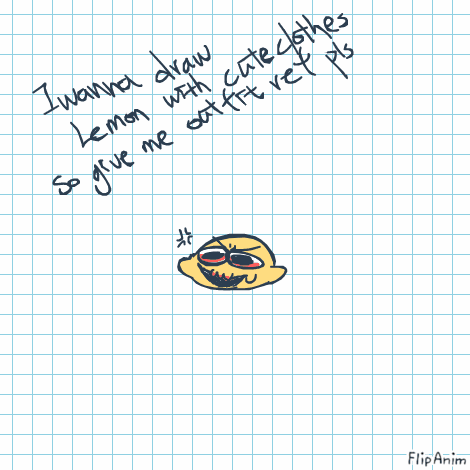 I wanna draw
Lemon with cute clothes
So give me outfit ref pls
FlipAnim